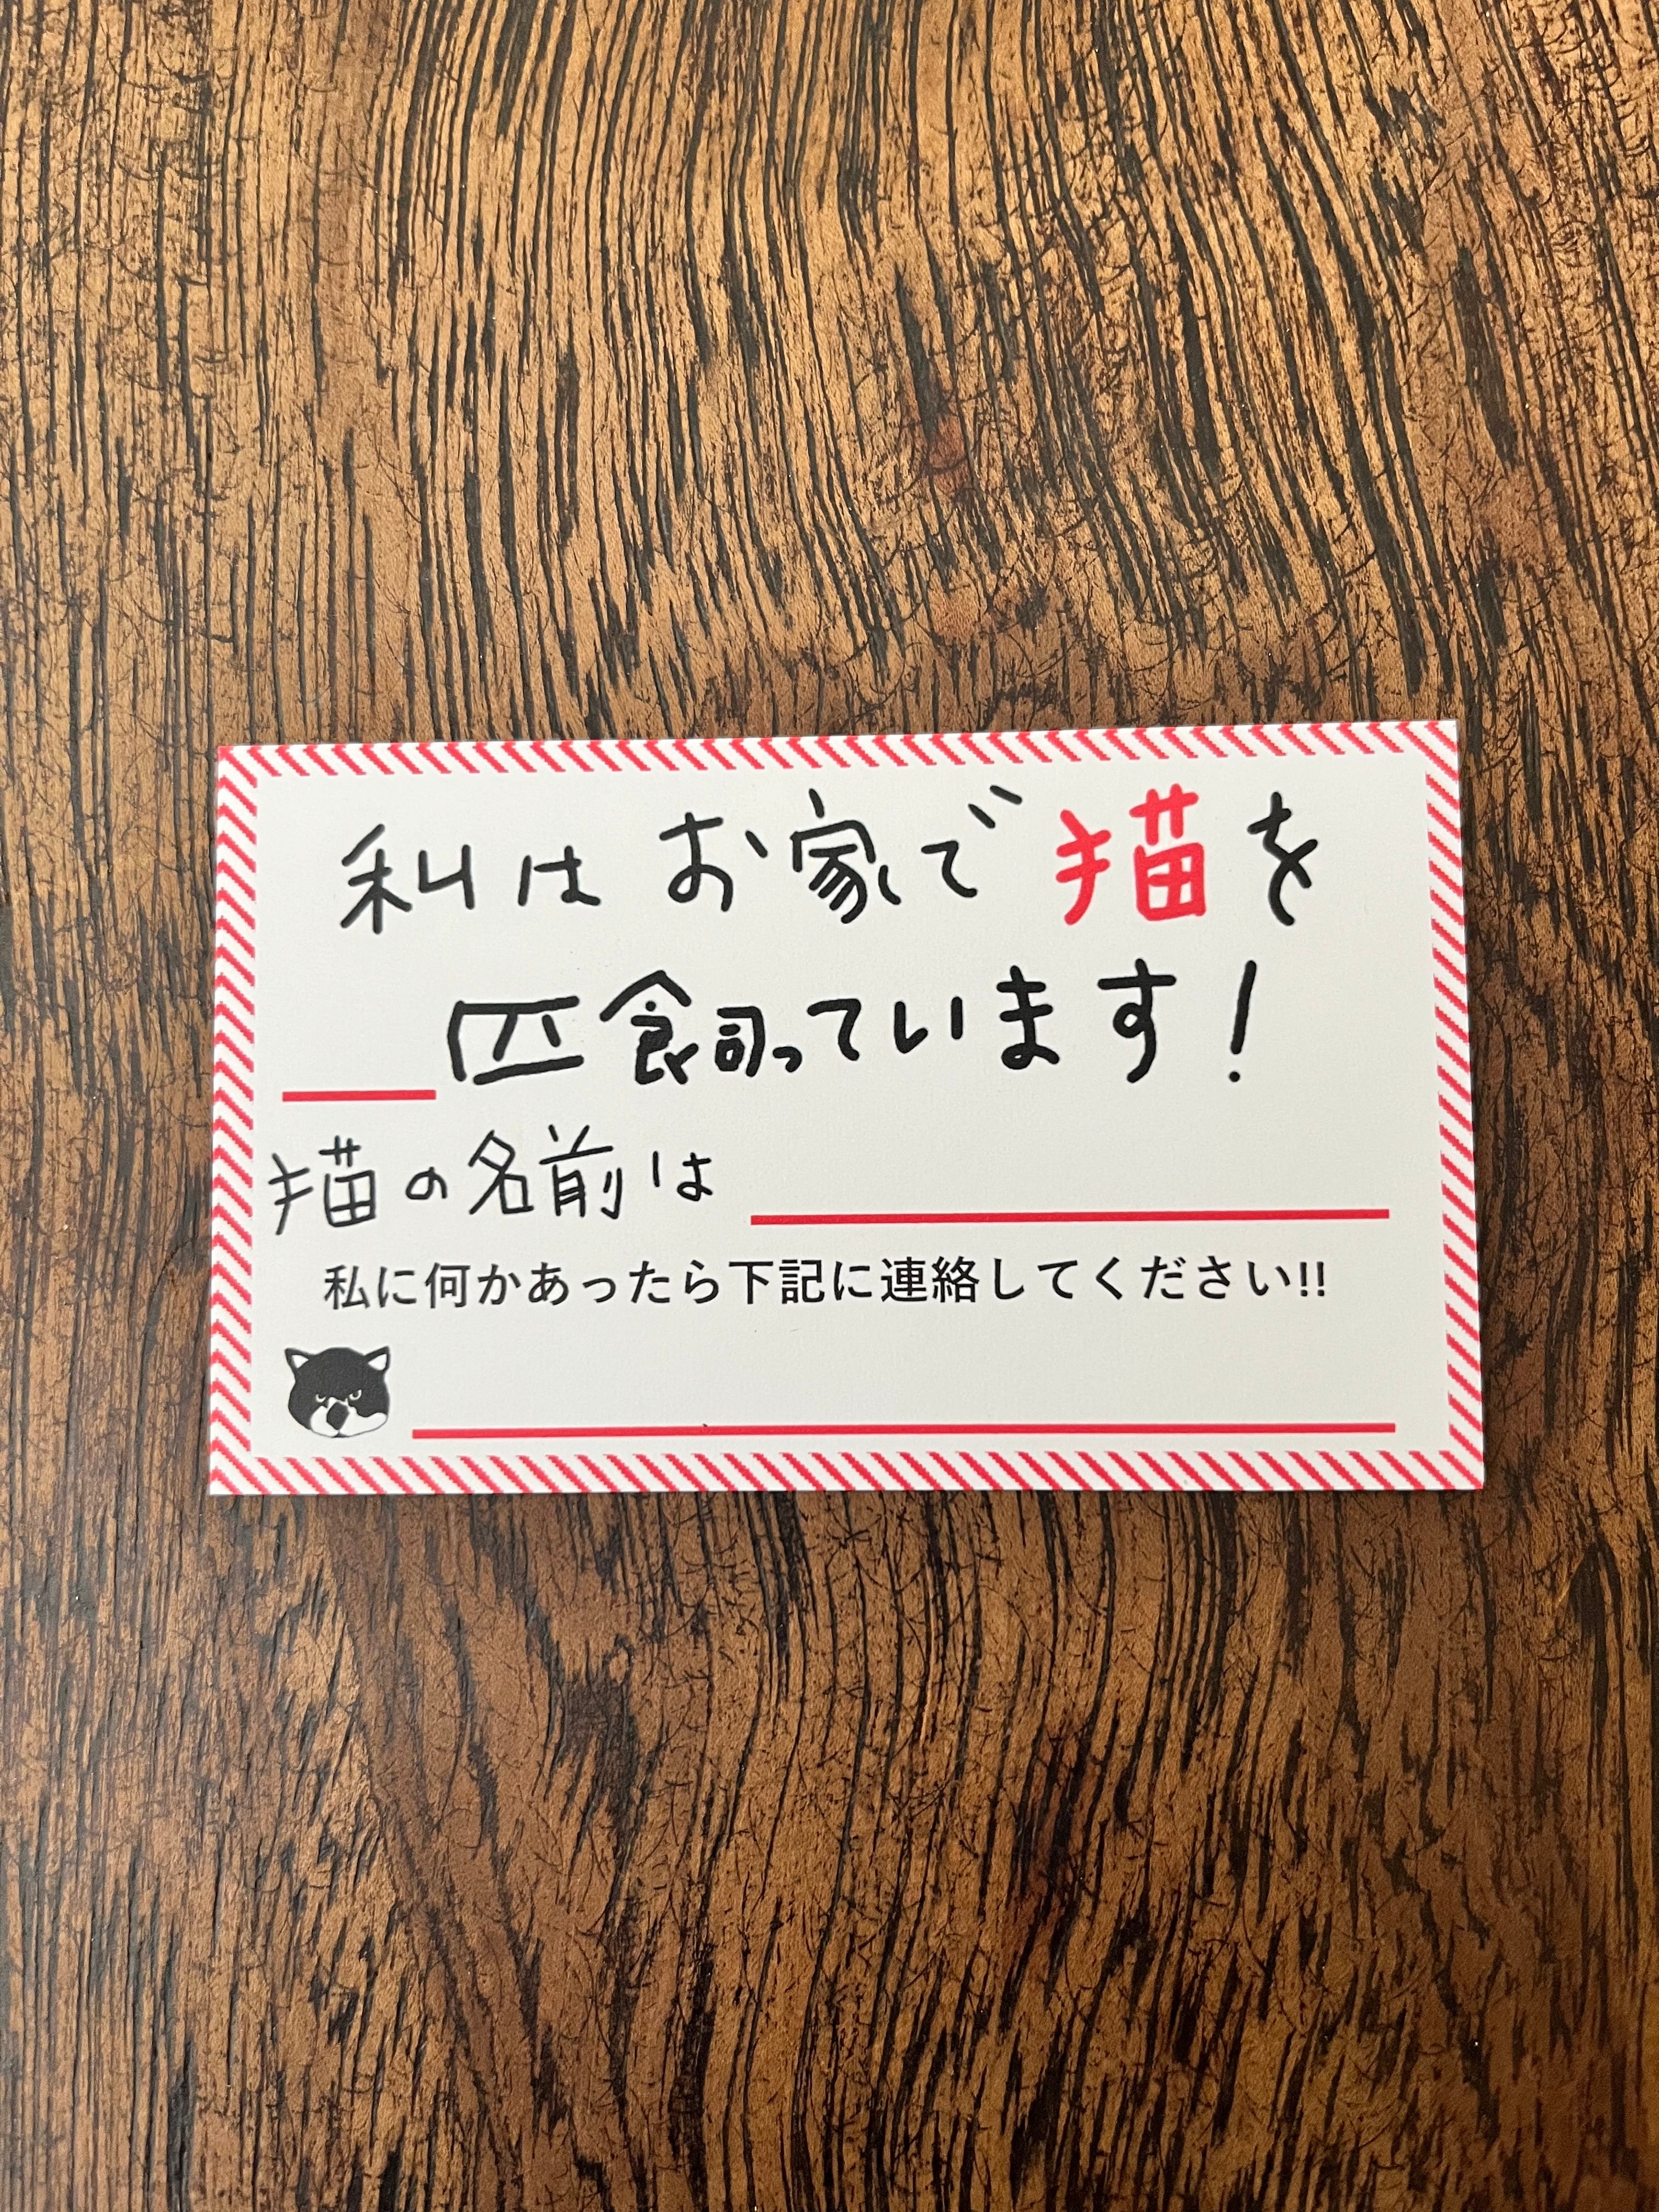 私はお家で猫を
匹飼っています!
猫の名前は
私に何かあったら下記に連絡してください!!